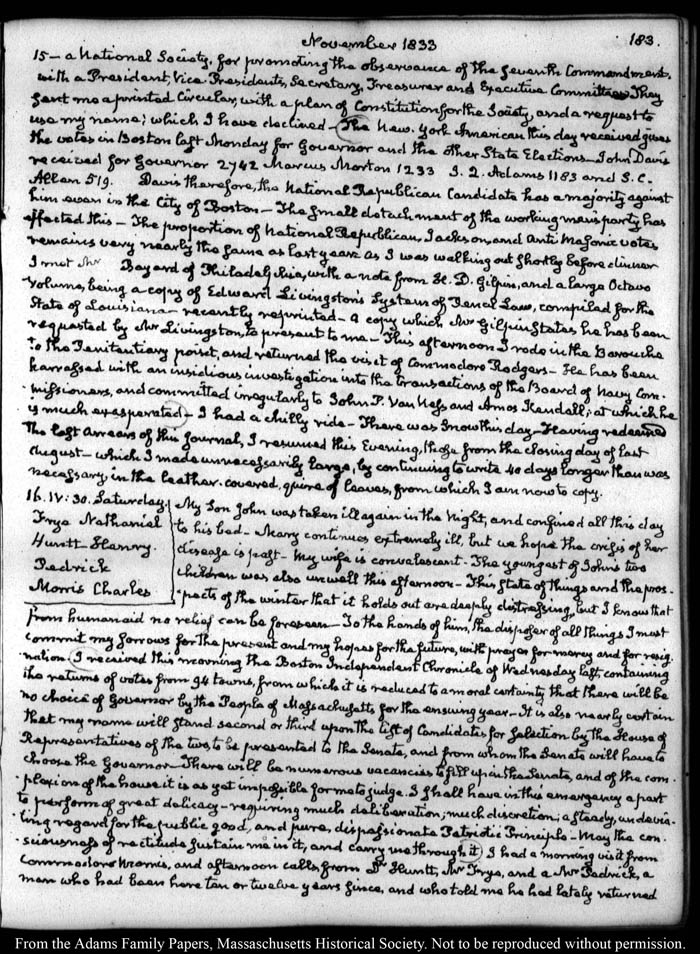 November 1833
183.
15 — a National Society, for promoting the observance of the seventh Commandment,
with a President, Vice-Presidents, Secretary, Treasurer and Executive Committee. They
sent me a printed Circular, with a plan of Constitution for the Society, and a request to
use my name; which I have declined — The New-York American, this day received gives
the votes in Boston last Monday for Governor and the other State Elections — John Davis
received for Governor 2742 Marcus Morton 1233 J. Q. Adams 1183 and S. C.
Allen 519. Davis therefore, the National Republican Candidate has a majority against
him even in the City of Boston — The small detachment of the working men's party has
effected this — The proportion of National Republican, Jackson, and Anti Masonic votes
remains very nearly the same as last year. As I was walking out shortly before dinner
I met Mr Bayard of Philadelphia, with a note from H. D. Gilpin, and a large Octavo
Volume, being a copy of Edward Livingston's System of Penal Law, compiled for the
State of Louisiana — recently reprinted — a copy which Mr Gilpin states he has been
requested by Mr Livingston, to present to me — This afternoon I rode in the Barouche
to the Penitentiary point, and returned the visit of Commodore Rodgers — He has been
harrassed with an insidious investigation into the transactions of the Board of Navy Com-
missioners, and committed irregularly to John P. Van Ness and Amos Kendall; at which he
is much exasperated — I had a chilly ride — There was snow this day — Having redeemed
the last arrears of this Journal, I resumed this Evening, those from the closing day of last
August — which I made unnecessarily large, by continuing to write 40 days longer than was
necessary, in the leather-covered, quire of leaves, from which I am now to copy.
16. IV: 30. Saturday.
Frye Nathaniel
Huntt Henry.
Pedrick
Morris Charles
My Son John was taken ill again in the Night, and confined all this day
to his bed — Mary continues extremely ill, but we hope the crisis of her
disease is past — My wife is convalescent — The youngest of John's two
children was also unwell this afternoon — This state of things and the pros-
pects of the winter that it holds out are deeply distressing, but I know that
from human aid no relief can be foreseen — To the hands of him, the disposer of all things I must
commit my sorrows for the present and my hopes for the future, with prayer for mercy and for resig-
nation. I received this morning the Boston Independent Chronicle of Wednesday last, containing
the returns of votes from 94 towns, from which it is reduced to a moral certainty that there will be
no choice of Governor by the People of Massachusetts for the ensuing year — It is also nearly certain
that my name will stand second or third upon the list of Candidates for selection by the House of
Representatives of the two, to be presented to the Senate, and from whom the Senate will have to
choose the Governor — There will be numerous vacancies to fill up in the Senate, and of the com-
plexion of the house it is as yet impossible for me to judge. I shall have in this emergency a part
to perform of great delicacy — requiring much deliberation; much discretion; a steady, undevia-
ting regard for the public good, and pure, dispassionate Patriotic Principle — May the con-
sciousness of rectitude sustain me in it, and carry me through it. I had a morning visit from
Commodore Morris, and afternoon calls from Dr Huntt, Mr Frye, and a Mr Pedrick, a
man who had been here ten or twelve years since, and who told me he had lately returned
From the Adams Family Papers, Massachusetts Historical Society. Not to be reproduced without permission.